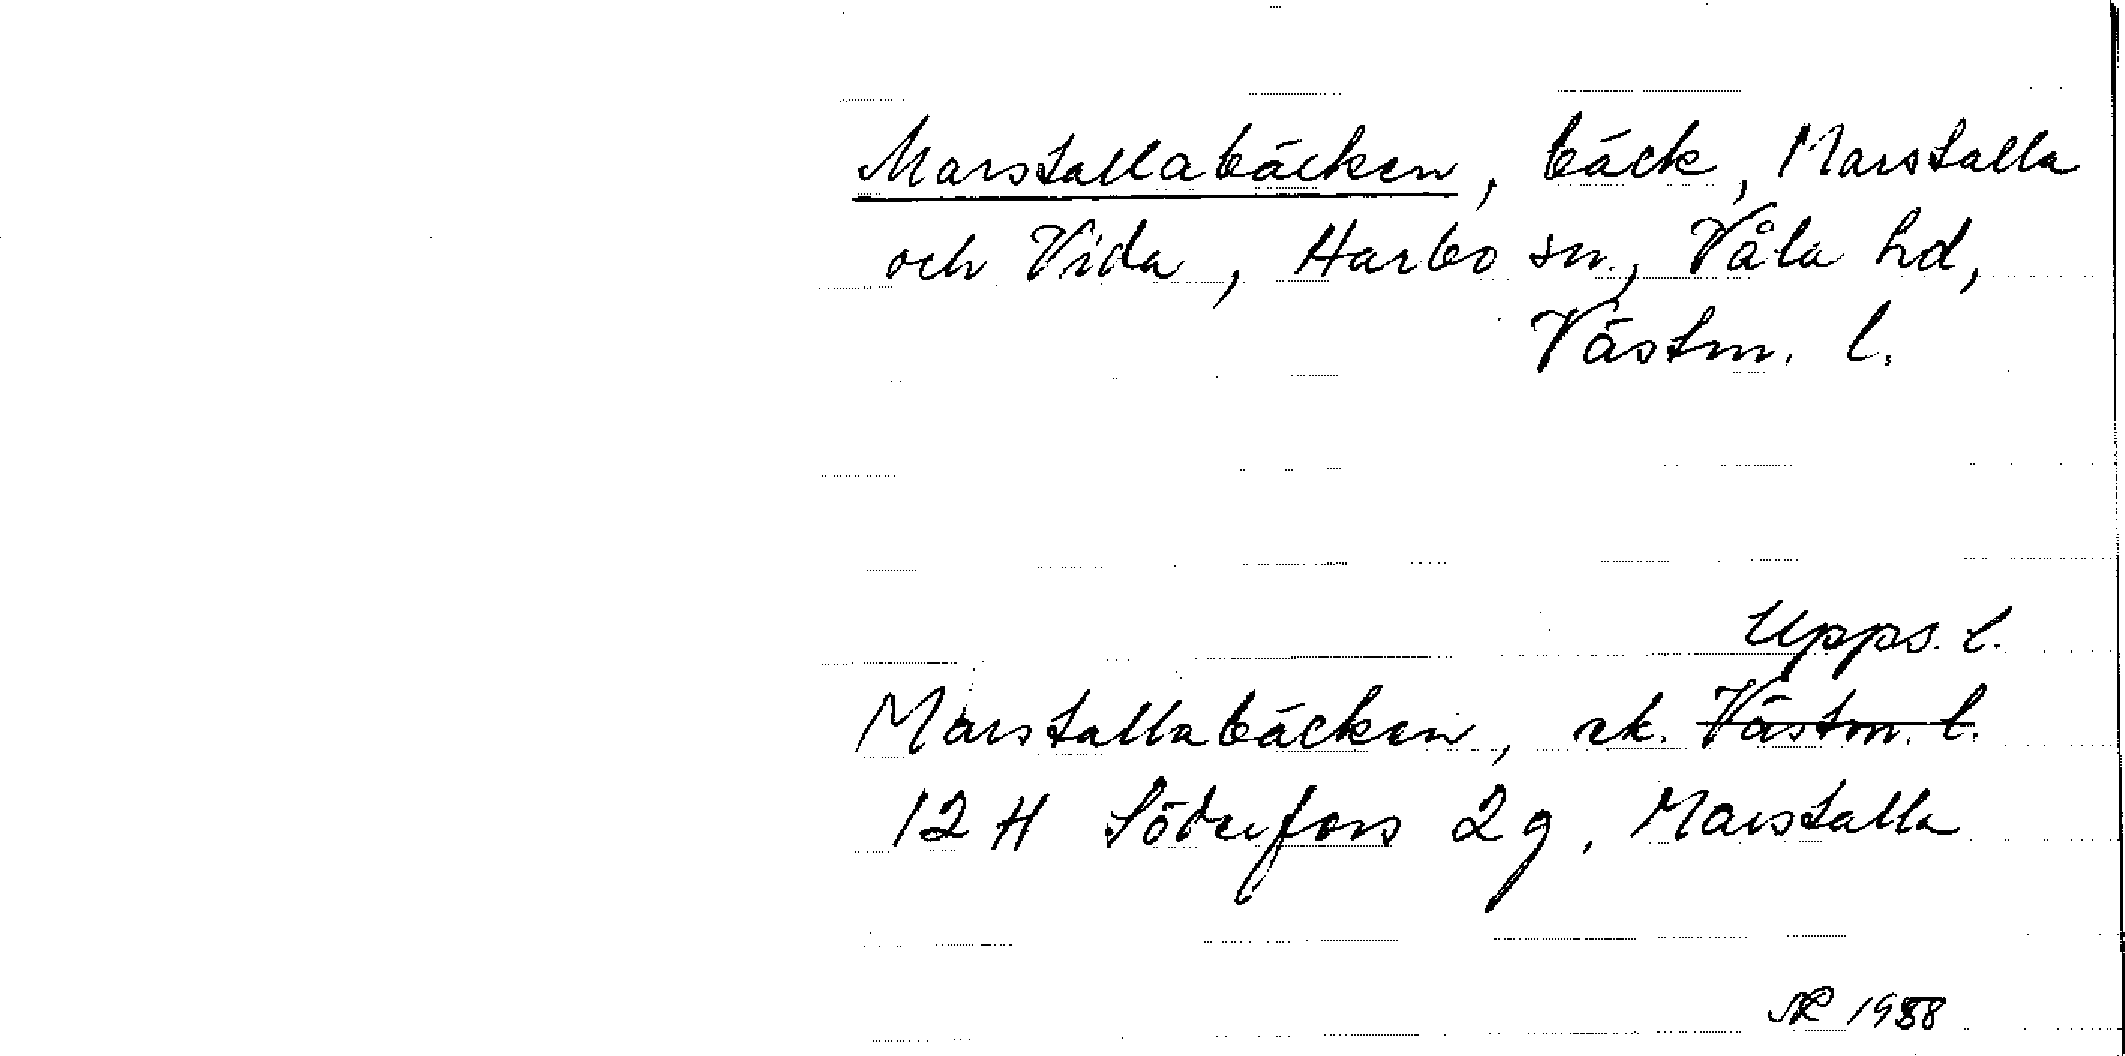 Marstallabäcken, bäck, Marstalla
och Vida, Harbo sn., Våla hd,
Västm. l.
Upps. l.
Marstallabäcken, rk. Västm. l.
12 H Söderfors 2 g, Marstalla
1988